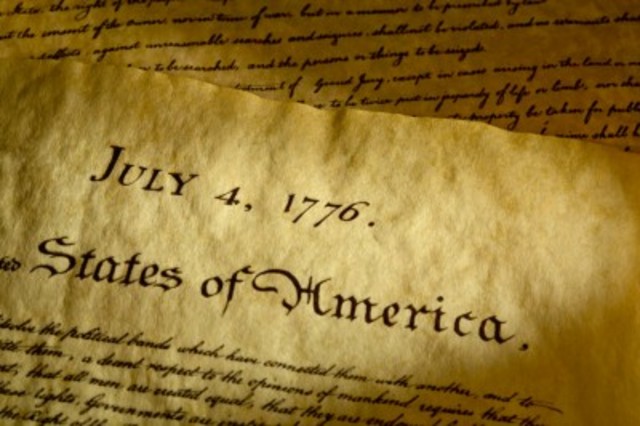 State, the right of the people
out the consent of the owner, nor in time of war, but in a manner to be prescribed by
against unreasonable searches and seizures, shall not be violated, and no warrants
to be searched, and the persons or things to be seized.
Grand Jury, except in cases arising in the land or
to be twice put in jeopardy of life or limb, nor
property be taken for publ
shall
JULY 4, 1776.
States of America.
dissolve the political bands which have connected them with another, and to
them, a decent respect to the opinions of mankind requires that they
that all men are created equal, that they are endowed
Rights, Governments are
the Right of the